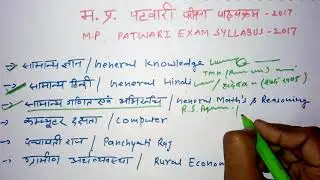 म.प्र. पटवारी परीक्षा पाठ्यक्रम - 2017
M.P PATWARI EXAM SYLLABUS - 2017
सामान्य ज्ञान / General Knowledge
सामान्य हिन्दी / General Hindi
सामान्य गणित एवं अभिरुचि / General Math's & Reasoning
R.S. Aggarwal
कम्प्यूटर दक्षता / Computer
पंचायती राज / Panchyati Raj
ग्रामीण अर्थव्यवस्था / Rural Econom